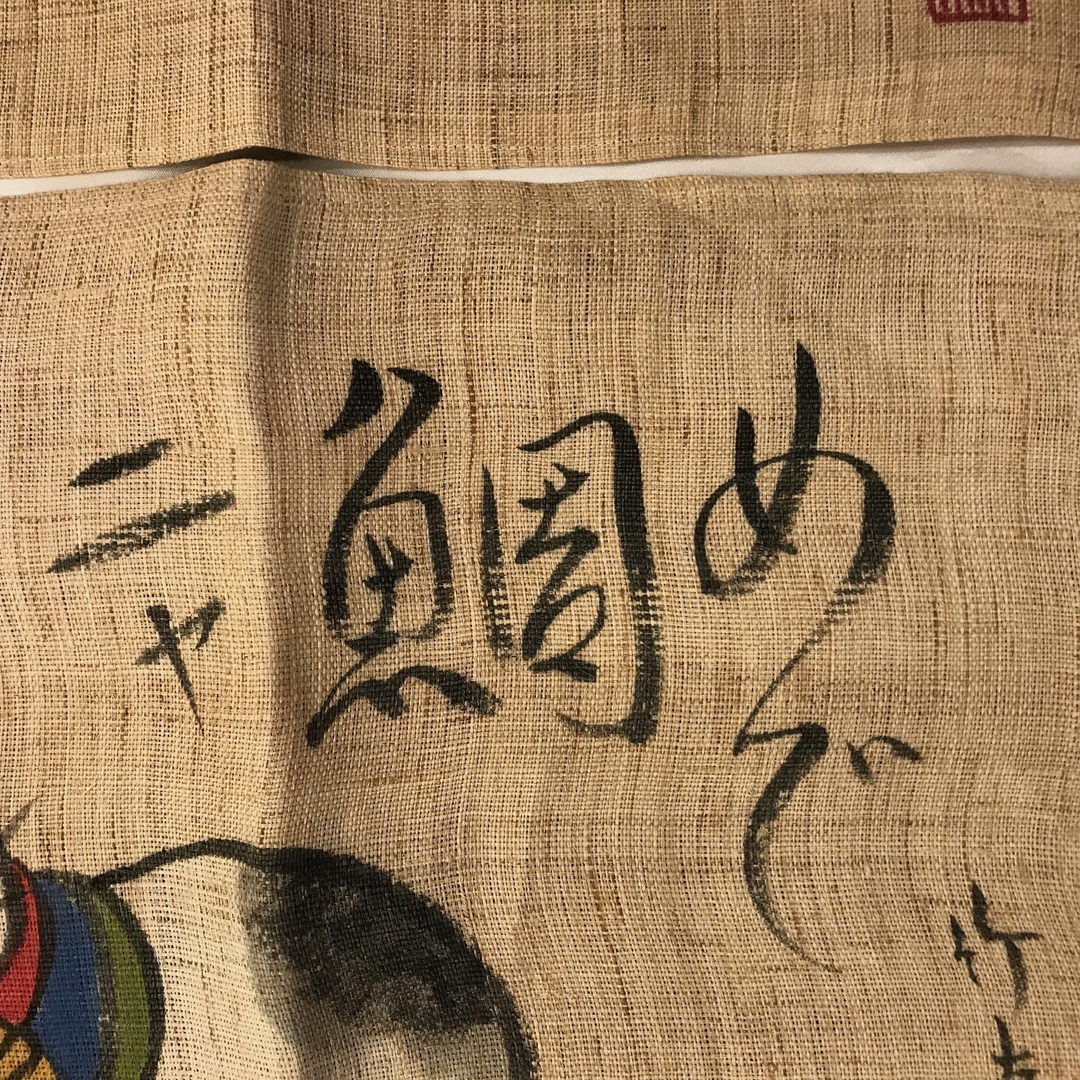 めで
鯛
ニャ